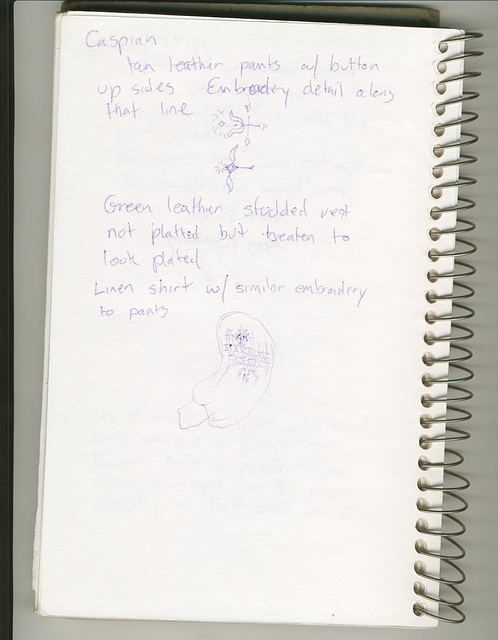 Caspian
tan leather pants w/ button
up sides Embroadery detail along
that line
Green leather studded vest
not platted but beaten to
look plated
Linen shirt w/ similar embroidery
to pants